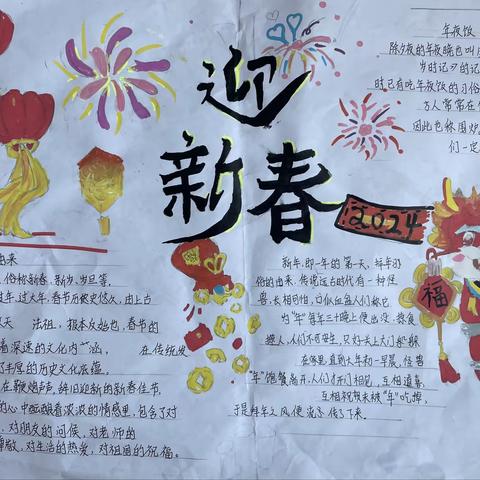 迎
新春
2024
福
年夜饭
除夕夜的年夜晚也叫
岁时记》的记
时已有吃年夜饭的习俗
万人常常在
因此也称围炉
们一定
由来
俗称新春、新岁、岁旦等
过年、过大年。春节历史悠久,由上古
法祖、报本反始也,春节的
着深邃的文化内涵,在传统发
了丰厚的历史文化底蕴。
在鞭炮声声,辞旧迎新的新春佳节
的心中酝酿着浓浓的情感里,包含了对
对朋友的问候、对老师的
敬、对生活的热爱、对祖国的祝福。
新年,即一年的第一天,拜年习
俗的由来,传说远古时代有一种怪
兽,长相可怕,口似血盆人们称它
为"年"每年三十晚上便出没,掠食
噬人,人们不可安生,只好关上大门躲躲
在家里,直到大年初一早晨,怪兽
"年"饱餐离开,人们才开门相见,互相道喜,
互相祝贺未被"年"吃掉,
于是拜年之风便流传了下来。